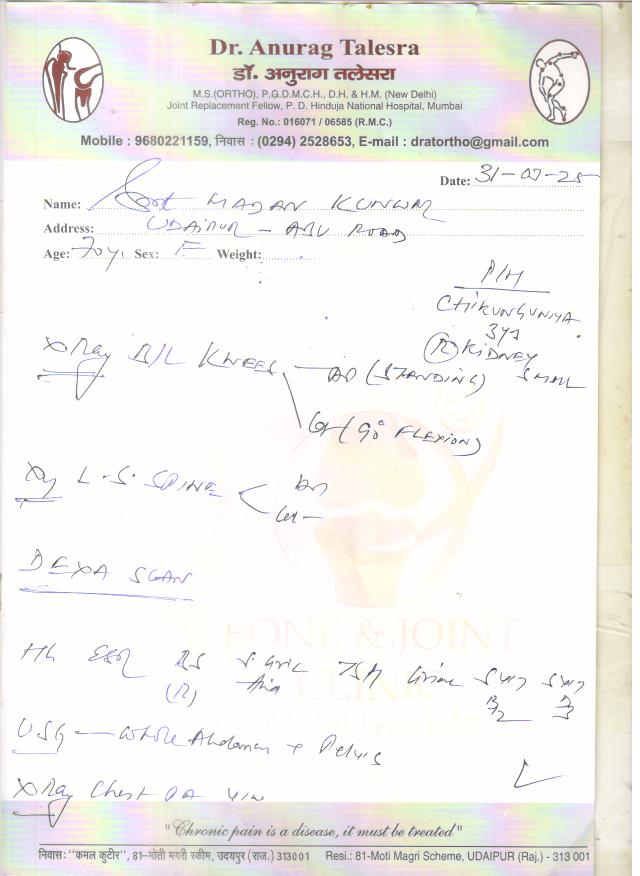 Dr. Anurag Talesra
डॉ. अनुराग तलेसरा
M.S.(ORTHO), P.G.D.M.C.H., D.H. & H.M. (New Delhi)
Joint Replacement Fellow, P. D. Hinduja National Hospital, Mumbai
Reg. No.: 016071 / 06585 (R.M.C.)
Mobile : 9680221159, निवास : (0294) 2528653, E-mail : dratortho@gmail.com
Date: 31-07-25
Name: MADAN KUNWAR
Address: UDAIPUR - ABU ROAD
Age: 70 y Sex: F Weight:
P/H
CHIKUNGUNIYA
3 yrs
(R) KIDNEY
SMALL
X Ray B/L KNEES — AP (STANDING)
Lat (90° FLEXION)
Xray L.S. SPINE < AP
Lat
DEXA SCAN
ESR
(R)
TSH
B12
D3
USG — Whole Abdomen + Pelvis
X Ray Chest PA View
BONE & JOINT
CLINIC
"Chronic pain is a disease, it must be treated"
निवास: "कमल कुटीर", 81-मोती मगरी स्कीम, उदयपुर (राज.) 313001 Resi.: 81-Moti Magri Scheme, UDAIPUR (Raj.) - 313 001